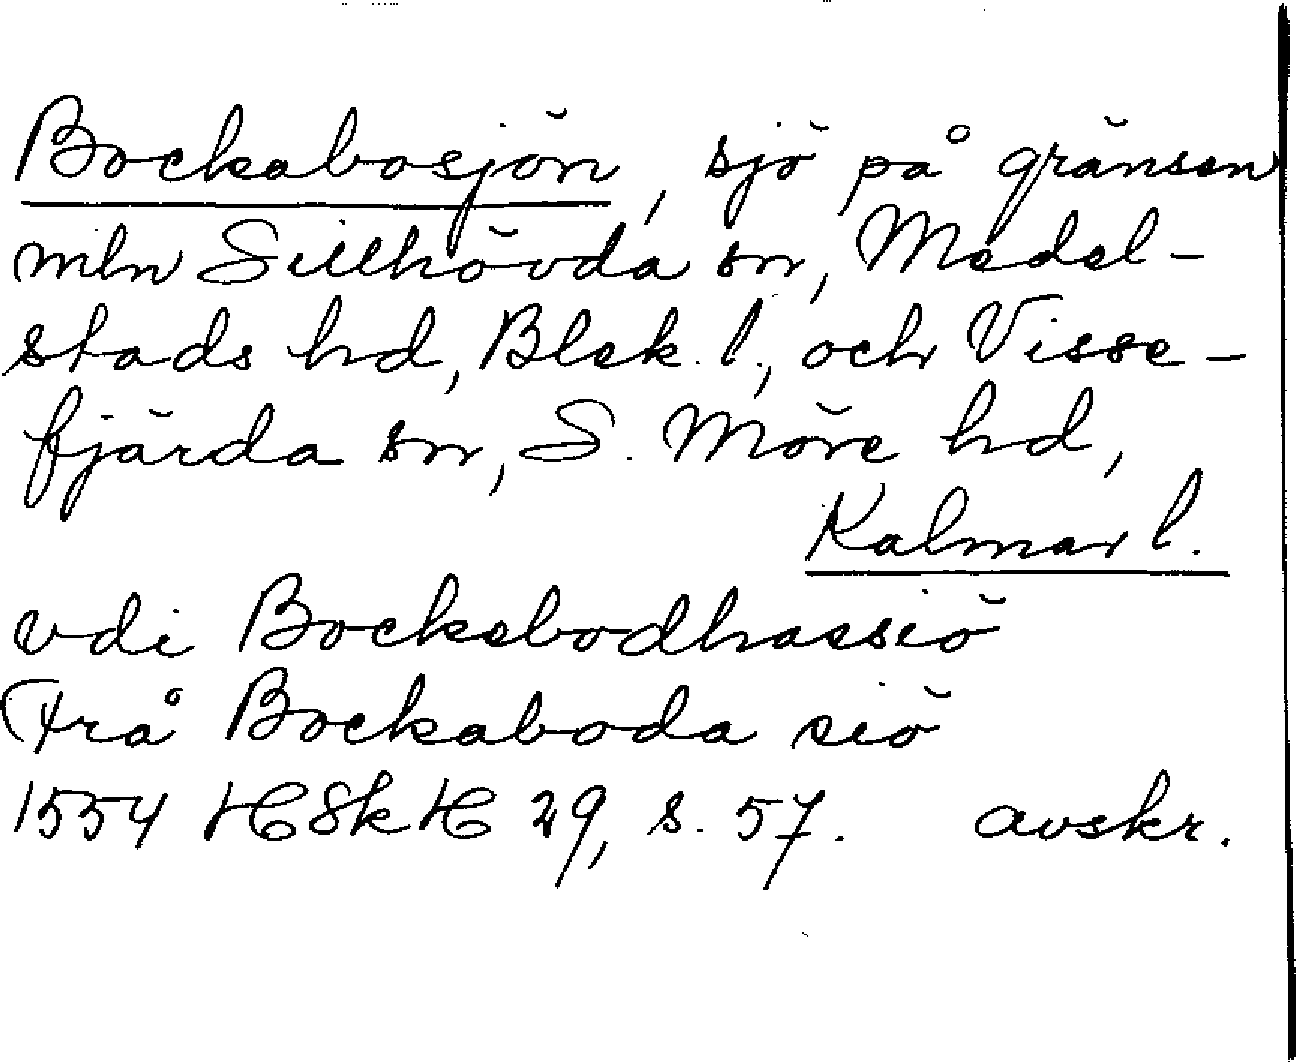 Bockabosjön, sjö på gränsen
mln Sillhövda sn, Medel-
stads hd, Blek. l., och Visse-
fjärda sn, S. Möre hd,
Kalmar l.
vdi Bockebodhassiö
Frå Bockaboda siö
1554 HSkH 29, s. 57. avskr.